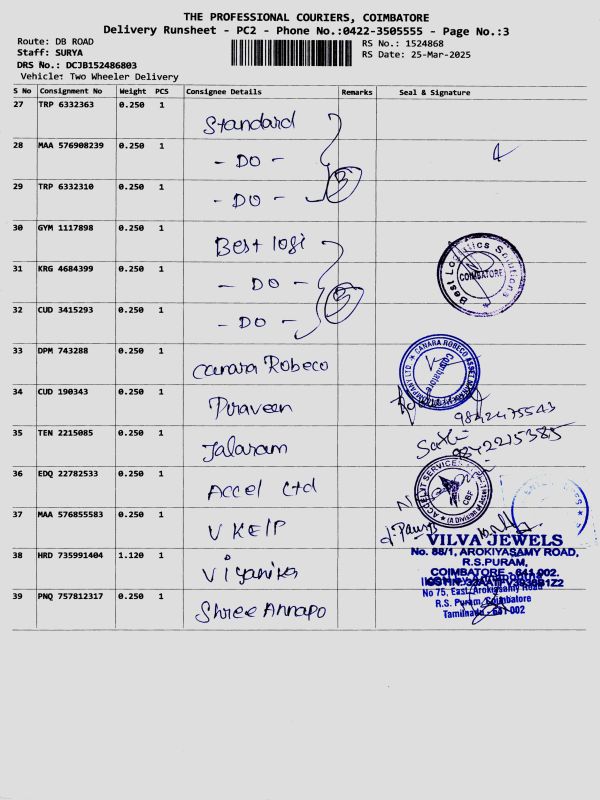 THE PROFESSIONAL COURIERS, COIMBATORE
Delivery Runsheet - PC2 - Phone No.:0422-3505555 - Page No.:3
Route: DB ROAD
Staff: SURYA
DRS No.: DCJB152486803
Vehicle: Two Wheeler Delivery
RS No.: 1524868
RS Date: 25-Mar-2025
S No Consignment No Weight PCS Consignee Details Remarks Seal & Signature
27 TRP 6332363 0.250 1 Standard
28 MAA 576908239 0.250 1 - DO -
29 TRP 6332310 0.250 1 - DO - 3
30 GYM 1117898 0.250 1 Best logi
Best Logistics Solutions
COIMBATORE
31 KRG 4684399 0.250 1 - DO -
32 CUD 3415293 0.250 1 - DO - 3
33 DPM 743288 0.250 1 Canara Robeco
CANARA ROBECO ASSET MANAGEMENT COMPANY LTD
Coimbatore
34 CUD 190343 0.250 1 Praveen
9842475543
35 TEN 2215085 0.250 1 Jalaram
9842215385
36 EDQ 22782533 0.250 1 Accel Ltd
ACCEL IT SERVICES
CBF
37 MAA 576855583 0.250 1 V KEIP
38 HRD 735991404 1.120 1 Viyanika
VILVA JEWELS
No. 88/1, AROKIYASAMY ROAD,
R.S.PURAM,
COIMBATORE - 641 002.
39 PNQ 757812317 0.250 1 Shree Annapo
No 75, East Arokiasamy Road
R.S. Puram, Coimbatore
Tamilnadu - 641 002